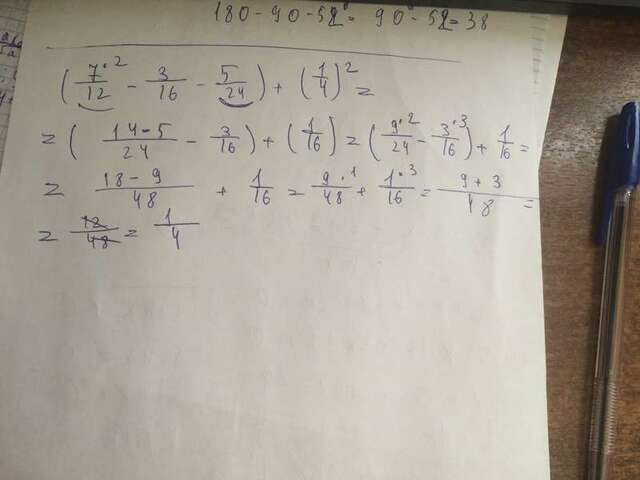 180 - 90 - 52° = 90° - 52 = 38
(7·2/12 - 3/16 - 5/24) + (1/4)² =
= (14-5/24 - 3/16) + (1/16) = (9·2/24 - 3·3/16) + 1/16 =
= 18-9/48 + 1/16 = 9·1/48 + 1·3/16 = 9+3/48 =
= 12/48 = 1/4